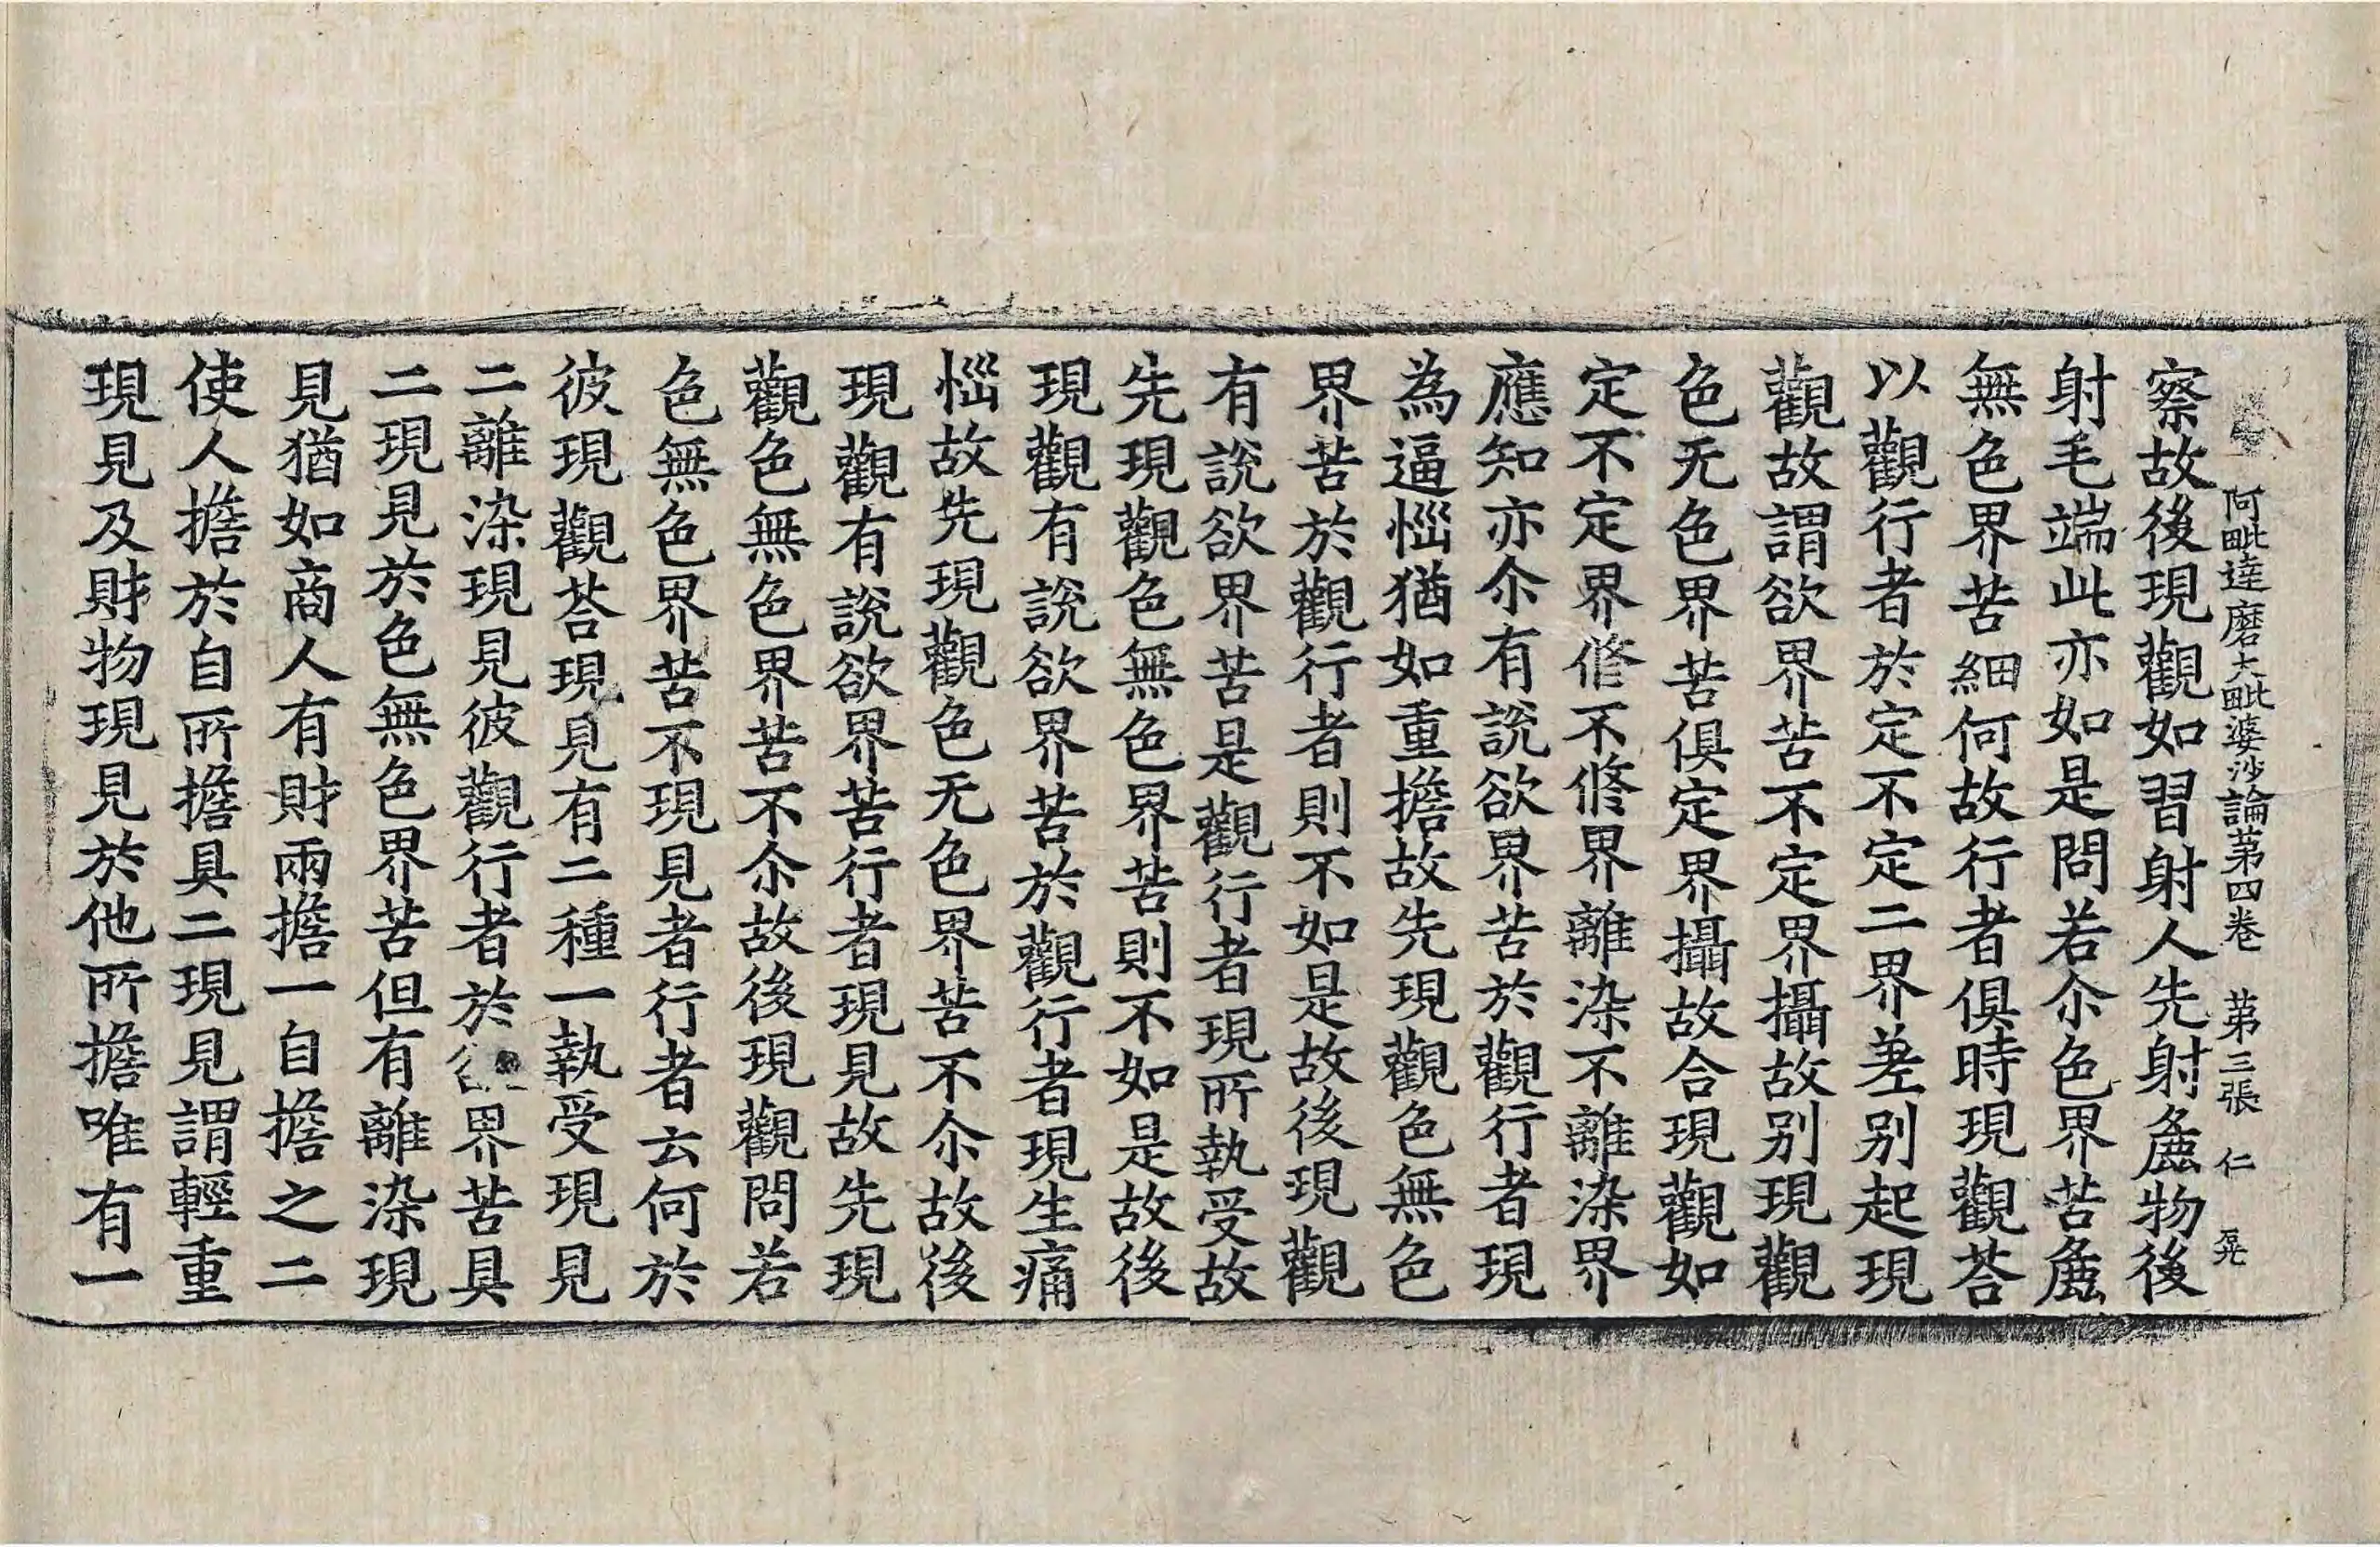 阿毗達磨大毗婆沙論苐四卷　苐三張　仁
察故後現觀如習射人先射麁物後
射毛端此亦如是問若尒色界苦麁
無色界苦細何故行者俱時現觀荅
以觀行者於定不定二界差别起現
觀故謂欲界苦不定界攝故别現觀
色无色界苦俱定界攝故合現觀如
定不定界修不修界離染不離染界
應知亦尒有說欲界苦於觀行者現
為逼惱猶如重擔故先現觀色無色
界苦於觀行者則不如是故後現觀
有說欲界苦是觀行者現所執受故
先現觀色無色界苦則不如是故後
現觀有說欲界苦於觀行者現生痛
惱故先現觀色无色界苦不尒故後
現觀有說欲界苦行者現見故先現
觀色無色界苦不尒故後現觀問若
色無色界苦不現見者行者云何於
彼現觀荅現見有二種一執受現見
二離染現見彼觀行者於界苦具
二現見於色無色界苦但有離染現
見猶如商人有財兩擔一自擔之二
使人擔於自所擔具二現見謂輕重
現見及財物現見於他所擔唯有一